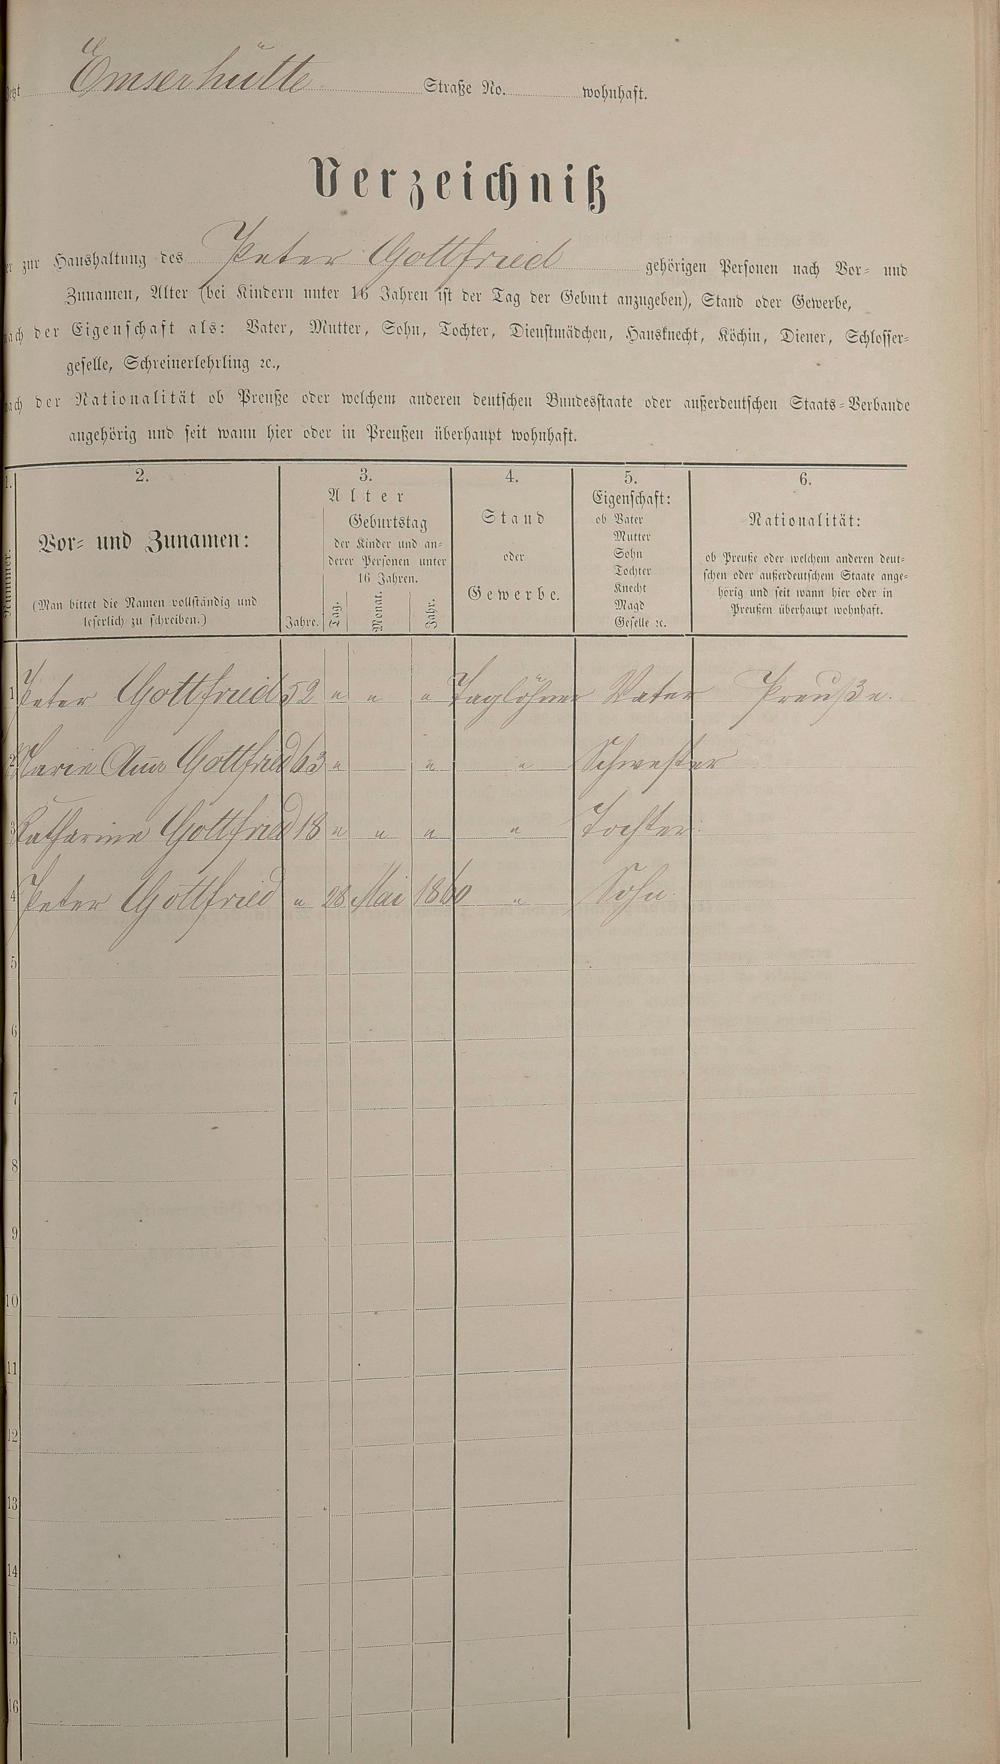 Emserhütte Straße No. wohnhaft.
Verzeichniß
zur Haushaltung des Peter Gottfried gehörigen Personen nach Vor- und
Zunamen, Alter (bei Kindern unter 16 Jahren ist der Tag der Geburt anzugeben), Stand oder Gewerbe,
nach der Eigenschaft als: Vater, Mutter, Sohn, Tochter, Dienstmädchen, Hausknecht, Köchin, Diener, Schlosser-
geselle, Schreinerlehrling ꝛc.,
nach der Nationalität ob Preuße oder welchem anderen deutschen Bundesstaate oder außerdeutschen Staats-Verbande
angehörig und seit wann hier oder in Preußen überhaupt wohnhaft.
1. 2. 3. 4. 5. 6.
Nummer.
Vor- und Zunamen:
(Man bittet die Namen vollständig und
leserlich zu schreiben.)
Alter
Geburtstag
der Kinder und an-
derer Personen unter
16 Jahren.
Jahre. Tag. Monat. Jahr.
Stand
oder
Gewerbe.
Eigenschaft:
ob Vater
Mutter
Sohn
Tochter
Knecht
Magd
Geselle ꝛc.
Nationalität:
ob Preuße oder welchem anderen deut-
schen oder außerdeutschem Staate ange-
hörig und seit wann hier oder in
Preußen überhaupt wohnhaft.
1 Peter Gottfried 52 " " " Taglöhner Vater Preuße.
2 Marie Anna Gottfried 63 " " " Schwester
3 Katharine Gottfried 18 " " " " Tochter
4 Peter Gottfried " 28 Mai 1860 " Sohn
5
6
7
8
9
10
11
12
13
14
15
16